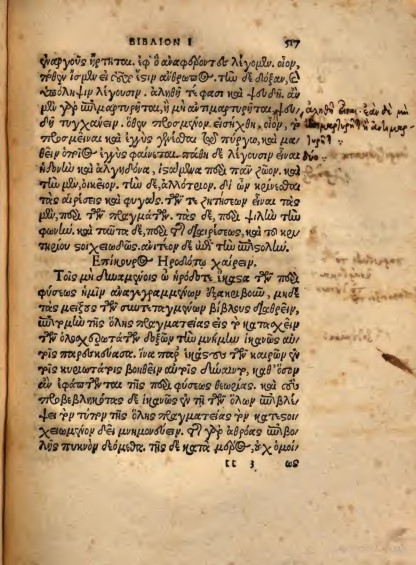 ΒΙΒΛΙΟΝ Ι 517
ἐναργοῦς ἤρτηται. ἐφ᾽ ὃ ἀναφέροντες λέγομεν. οἷον,
πόθεν ἴσμεν εἰ τοῦτό ἐστιν ἄνθρωπος. τὴν δὲ δόξαν, καὶ
ὑπόληψιν λέγουσιν. ἀληθῆ τέ φασι καὶ ψευδῆ. ἂν
μὲν γὰρ ἐπιμαρτυρῆται, ἢ μὴ ἀντιμαρτυρῆται, ψευ
δῆ τυγχάνειν. ὅθεν προσμένον εἰσήχθη, οἷον, τὸ
προσμεῖναι καὶ ἐγγὺς γενέσθαι τοῦ πύργου, καὶ μα
θεῖν ὁποῖος ἐγγὺς φαίνεται. πάθη δὲ λέγουσιν εἶναι
ἡδονὴν καὶ ἀλγηδόνα, ἱστάμενα περὶ πᾶν ζῶον. καὶ
τὴν μὲν, οἰκεῖον. τὴν δὲ, ἀλλότριον. δι᾽ ὧν κρίνεσθαι
τὰς αἱρέσεις καὶ φυγάς. τῶν τε ζητήσεων εἶναι τὰς
μὲν, περὶ τῶν πραγμάτων. τὰς δὲ, περὶ ψιλὴν τὴν
φωνήν. καὶ ταῦτα δὲ, περὶ τῆς διαιρέσεως, καὶ τοῦ κρι
τηρίου στοιχειωδῶς. ἀνιτέον δὲ ἐπὶ τὴν ἐπιστολήν.
Ἐπίκουρος Ἡροδότῳ χαίρειν.
Τοῖς μὴ δυναμένοις ὦ ἡρόδοτε ἕκαστα τῶν περὶ
φύσεως ἡμῖν ἀναγεγραμμένων ἐξακριβοῦν, μηδὲ
τὰς μείζους τῶν συντεταγμένων βίβλους διαθρεῖν,
ἐπιτομὴν τῆς ὅλης πραγματείας εἰς τὸ κατασχεῖν
τῶν ὁλοσχερωτάτων δοξῶν τὴν μνήμην ἱκανῶς αὐ
τοῖς παρεσκεύασα. ἵνα παρ᾽ ἑκάστους τῶν καιρῶν ἐν
τοῖς κυριωτάτοις βοηθεῖν αὐτοῖς δύνωνται, καθ᾽ ὅσον
ἂν ἐφάπτωνται τῆς περὶ φύσεως θεωρίας. καὶ τοὺς
προβεβληκότας δὲ ἱκανῶς ἐν τῇ τῶν ὅλων ἐπιβλέ
ψει τὸν τύπον τῆς ὅλης πραγματείας τὸν κατεστοι
χειωμένον δεῖ μνημονεύειν. τῆς γὰρ ἀθρόας ἐπιβο
λῆς πυκνὸν δεόμεθα. τῆς δὲ κατὰ μέρος, οὐχ ὁμοί
cc 3 ως